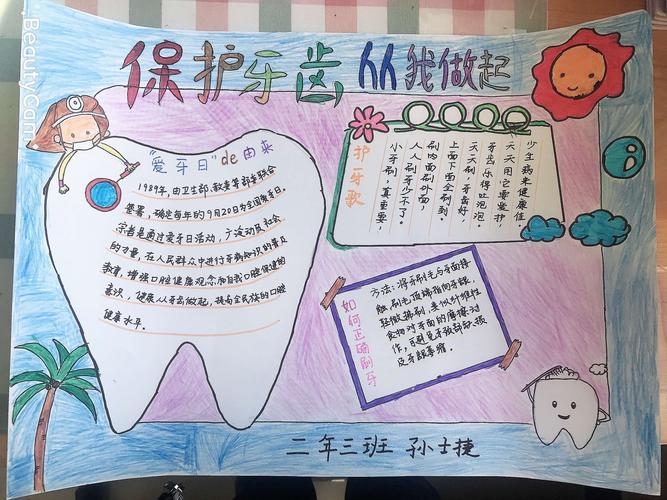 保护牙齿从我做起
BeautyCam
"爱牙日"de由来
1989年，由卫生部、教委等部委联合
签署，确定每年的9月20日为全国爱牙日。
宗旨是通过爱牙日活动，广泛动员社会
的力量，在人民群众中进行牙病知识的普及
教育，增强口腔健康观念和自我口腔保健的
意识，健康从牙齿做起，提高全民族的口腔
健康水平。
护牙歌
小牙刷，真重要，
人人刷牙少不了。
刷内面刷外面，
上面下面全刷到。
天天刷，牙齿好，
牙齿乐得吐泡泡。
天天用它要爱护，
少生病来健康佳。
如何正确刷牙
方法：将牙刷毛与牙面接
触，刷毛顶端指向牙龈，
轻微拂刷，类似纤维性
食物对牙面的摩擦动
作，可避免牙颈部缺损
及牙龈萎缩。
二年三班 孙士捷